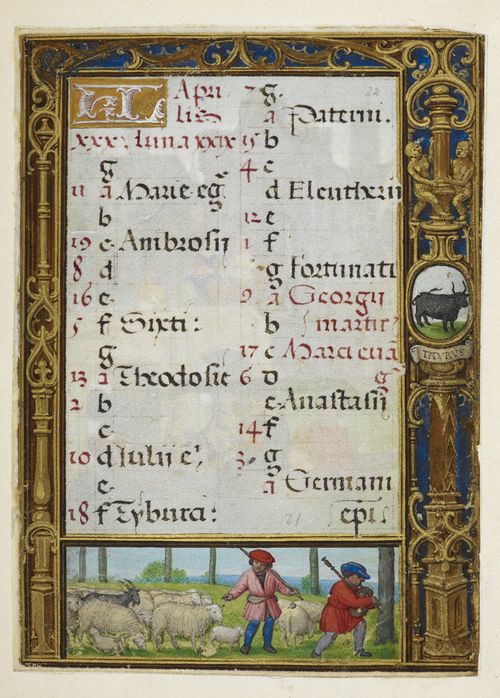 KL Apri
lis
xxx luna xxix
g
11 a Marie eg
b
19 c Ambrosii
8 d
16 e
5 f Sixti:
g
13 a Theodosie
2 b
c
10 d Iulii e
e
18 f Tyburci:
7 g
a Paterni.
15 b
4 c
d Eleuthxrii
12 e
1 f
g Fortunati
9 a Georgii
b martir
17 c Marci eua
6 d g
e Anastasii
14 f
3 g
a Germani
epi
TAVRVS
22
21